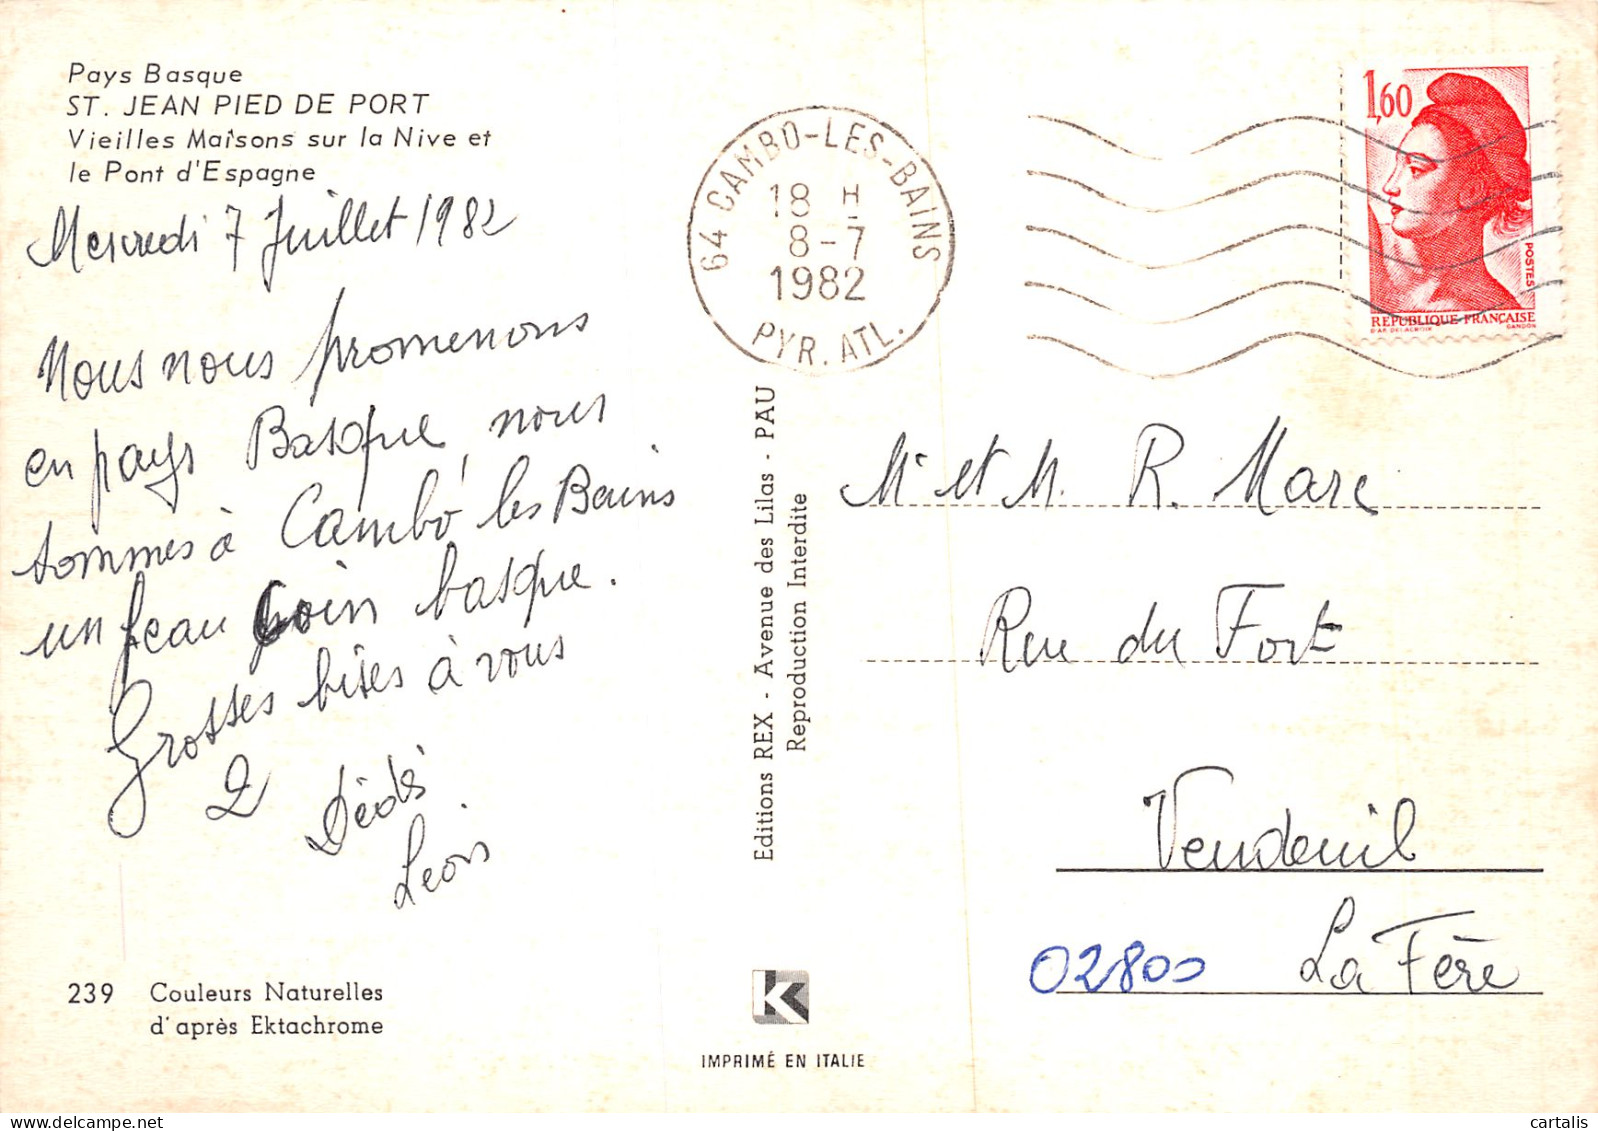 Pays Basque
ST. JEAN PIED DE PORT
Vieilles Maisons sur la Nive et
le Pont d'Espagne
Mercredi 7 Juillet 1982
Nous nous promenons
en pays Basque, nous
sommes à Cambo les Bains
un beau coin basque.
Grosses bises à vous
2 Dédé
Léon
239 Couleurs Naturelles
d'après Ektachrome
64 CAMBO-LES-BAINS
18 H
8-7
1982
PYR. ATL.
Editions REX - Avenue des Lilas - PAU
Reproduction Interdite
K
IMPRIMÉ EN ITALIE
1,60
POSTES
REPUBLIQUE FRANÇAISE
D'AP. DELACROIX GANDON
Mr et M. R. Marc
Rue du Fort
Vendeuil
02800 La Fère
cartalis